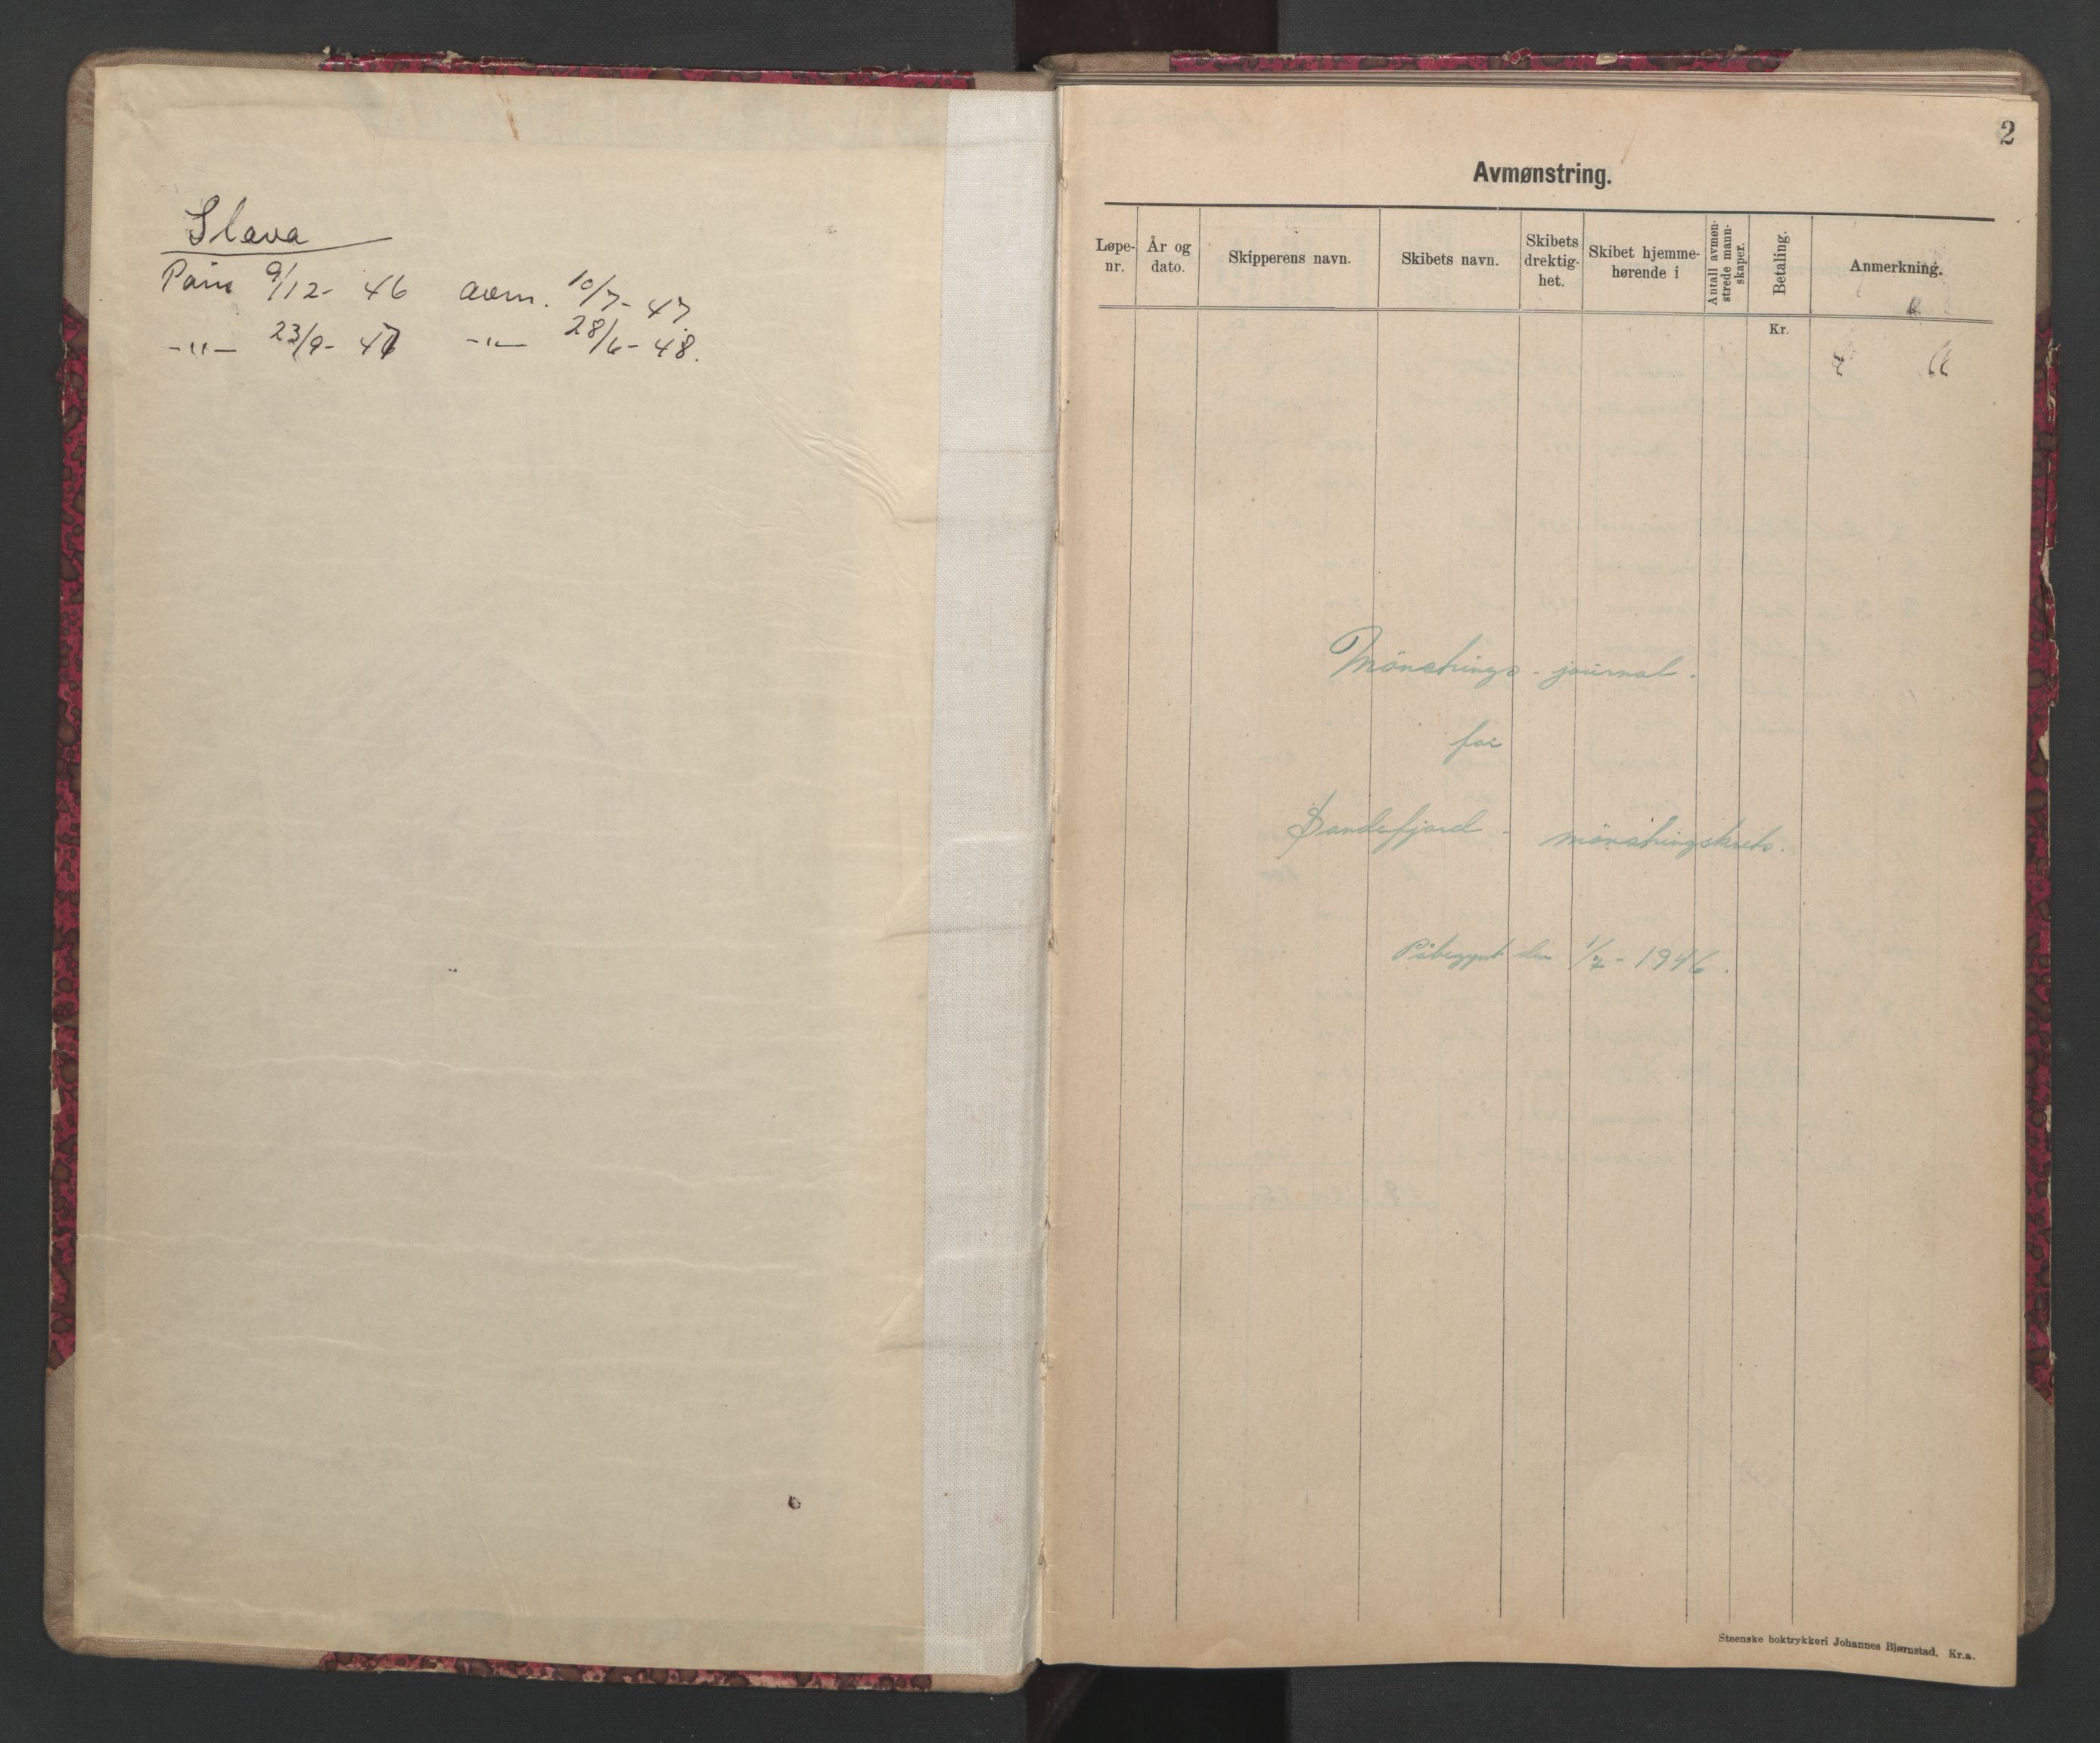 Slava
Påm 9/12- 46 avm. 10/7- 47.
-"- 23/9- 47 -"- 28/6- 48.
2
Avmønstring.
Løpe-nr.
År og dato.
Skipperens navn.
Skibets navn.
Skibets drektig-het.
Skibet hjemme-hørende i
Antall avmøn-strede mann-skaper.
Betaling.
Anmerkning.
Kr.
Mönstrings-journal.
for
Sandefjord - mönstringskrets.
Påbegynt den 1/7- 1946.
Steenske boktrykkeri Johannes Bjørnstad. Kr.a.